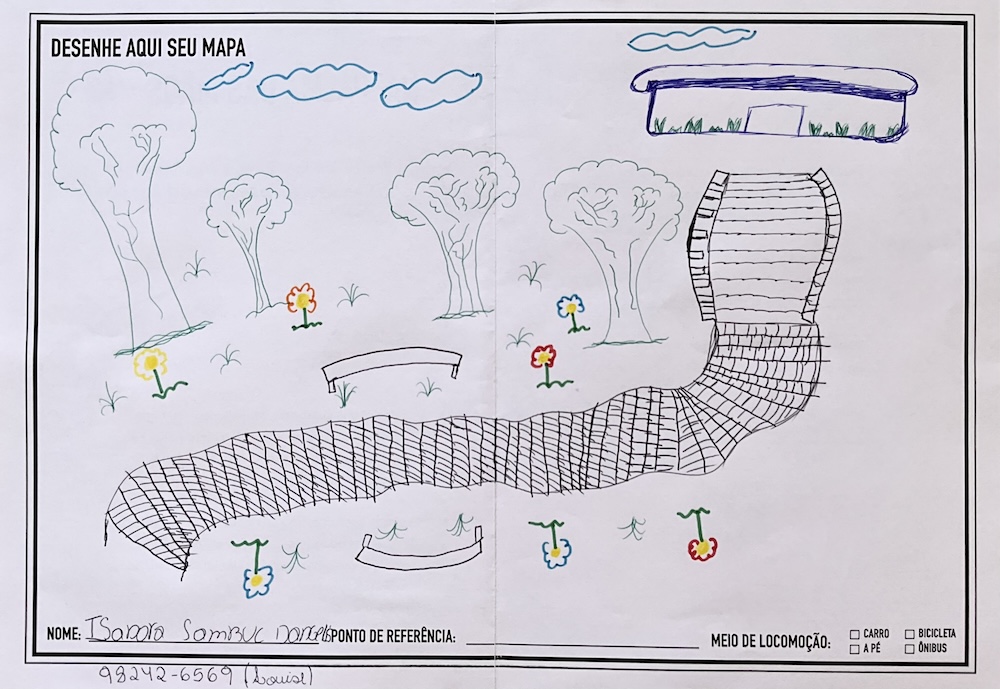 DESENHE AQUI SEU MAPA
NOME: Isadora Sambuc PONTO DE REFERÊNCIA: MEIO DE LOCOMOÇÃO: CARRO BICICLETA
A PÉ ÔNIBUS
98242-6569 (Louise)